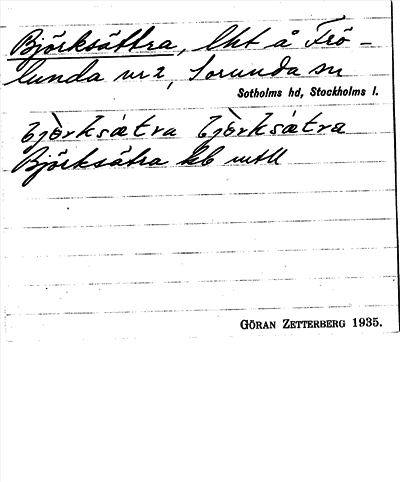 Björksättra, lht å Frö-
lunda nr 2, Sorunda sn
Sotholms hd, Stockholms l.
Björksätra
Björksätra kb mtll
GÖRAN ZETTERBERG 1935.